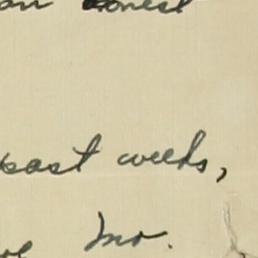 an honest
past weeks,
Mr.